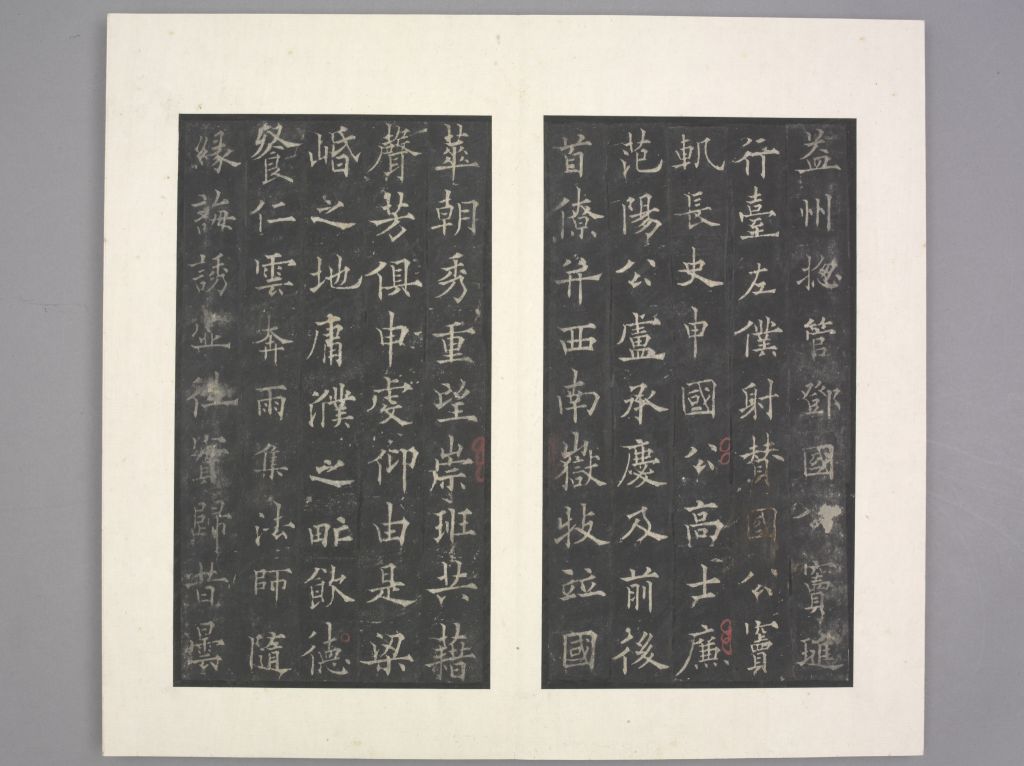 益州揔管鄧國公竇璡
行臺左僕射賛國公竇
軌長史申國公高士廉
范陽公盧承慶及前後
首僚并西南嶽牧並國
華朝秀重望崇班共藉
聲芳俱申虔仰由是梁
㟭之地庸濮之甿飲德
飡仁雲奔雨集法師隨
縁誨誘虚往實歸昔曇